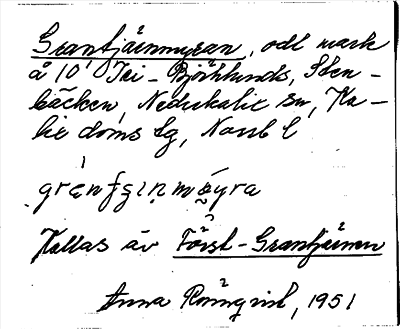 Grantjärnmyran, odl mark
å 10 Tri-Björklunds, Sten-
bäcken, Nederkalix sn, Ka-
lix doms lg, Norrb l
Kallas äv Först-Grantjärnen
Anna Rönnqvist, 1951